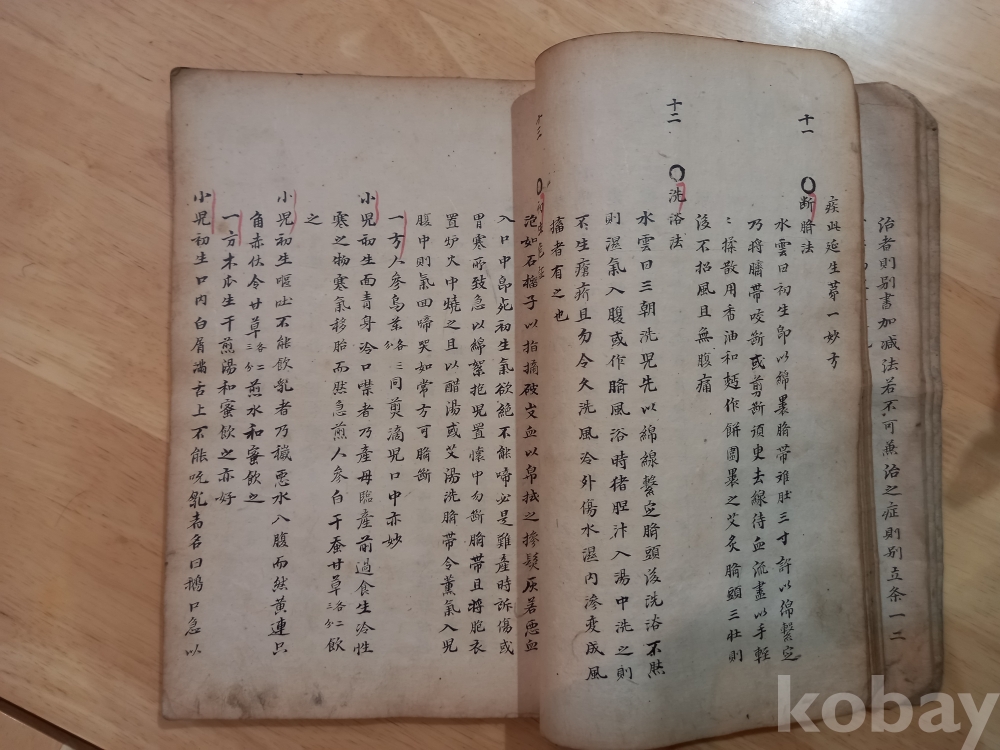 治者則別書加減法若不可兼治之症則別立条一二
疾此延生第一妙方
十一 斷臍法
水雲曰初生卽以綿裹臍帶难肚三寸許以綿繫定
乃將臍帶咬斷或剪斷須更去線待血流盡以手輕
：揉散用香油和麪作餠圍裹之艾炙臍頭三壯則
後不招風且無腹痛
十二 洗浴法
水雲曰三朝洗児先以綿線繫定臍頭後洗浴不然
則濕氣入腹或作臍風浴時猪胆汁入湯中洗之則
不生瘡疥且勿令久洗風冷外傷水濕內滲变成風
搐者有之也
十三 初
泡如石榴子以指摘破出血以帛拭之摻髮灰若悪血
入口中卽死初生氣欲絶不能啼必是難產時訴傷或
胃寒所致急以綿絮抱児置懷中勿斷臍帶且將胞衣
置炉火中燒之且以醋湯或艾湯洗臍帶令薰氣入児
腹中則氣回啼哭如常方可臍斷
一方人參烏茶各三分同煎滴児口中亦妙
小児初生面青身冷口噤者乃產母臨產前過食生冷性
寒之物寒氣移胎而然急煎人參白干蚕甘草各二三分飲
之
小児初生嘔吐不能飲乳者乃穢悪水入腹而然黃連只
角赤伏令甘草各二三分煎水和蜜飲之
一方木瓜生干煎湯和蜜飲之亦好
小児初生口內白屑满舌上不能吮乳者名曰鵝口急以
kobay